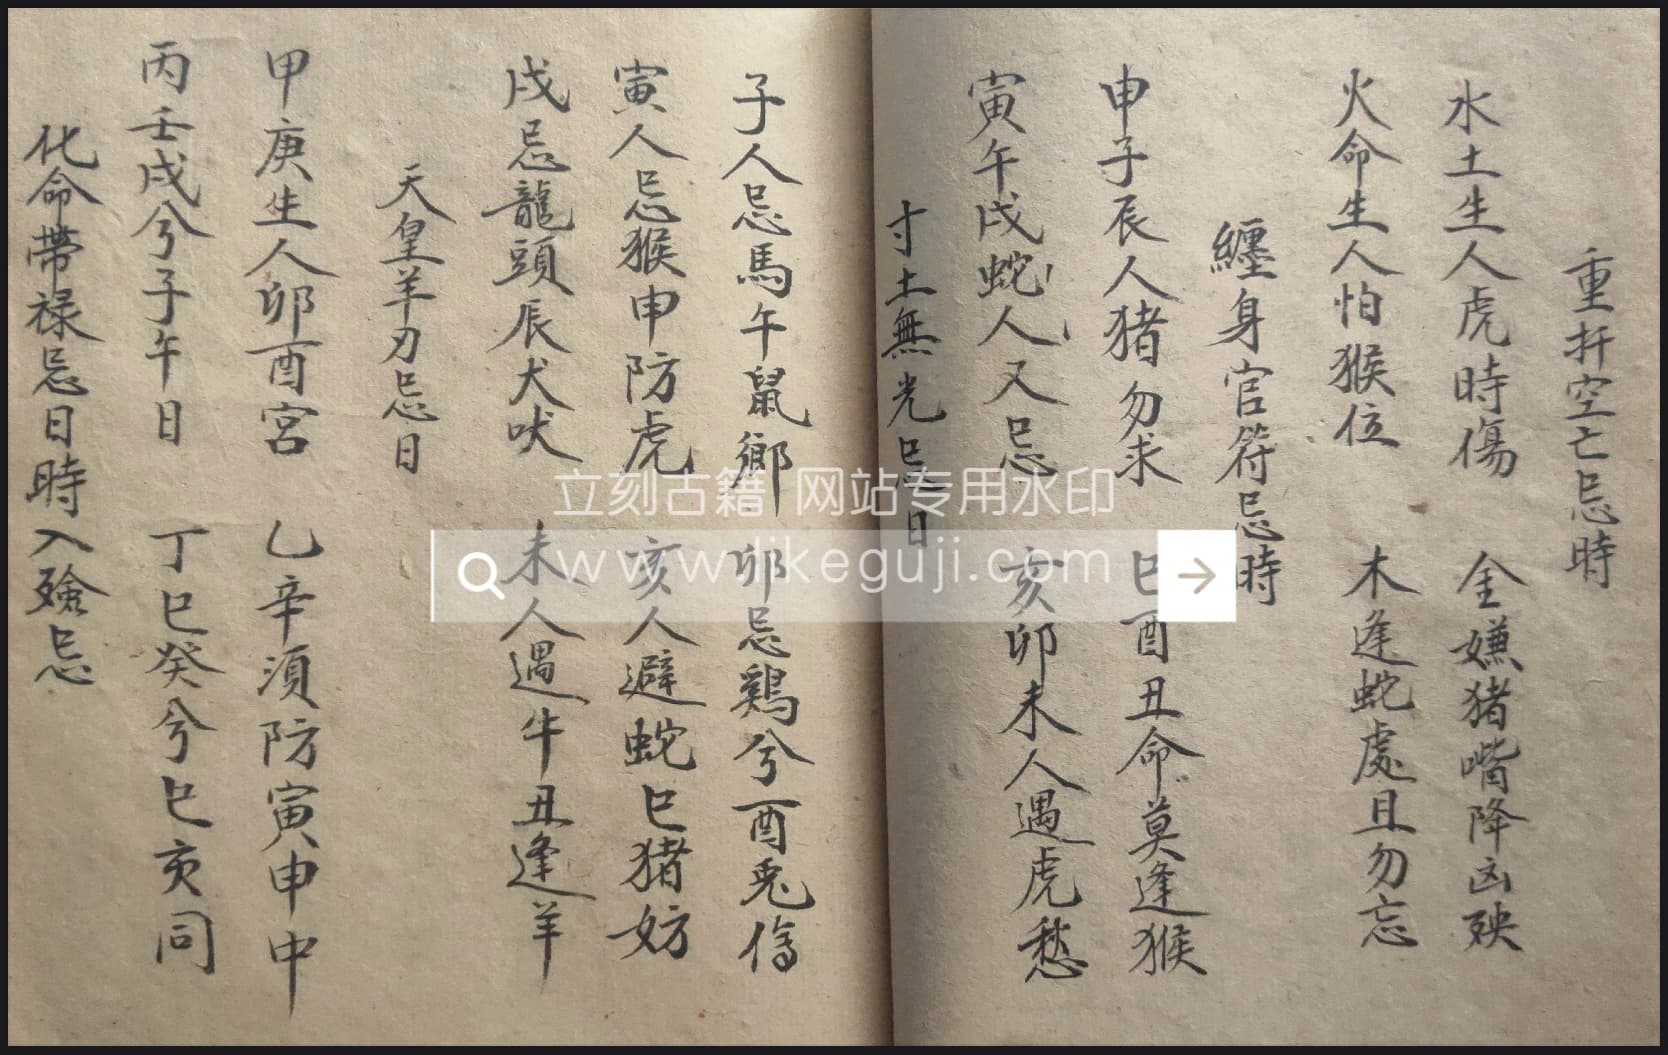 重折空亡忌時
水土生人虎時傷 金嫌猪嘴降凶殃
火命生人怕猴位 木逢蛇處且勿忘
纏身官符忌時
申子辰人猪勿求 巳酉丑命莫逢猴
寅午戌蛇人又忌 亥卯未人遇虎愁
寸土無光忌日
子人忌馬午鼠鄉 卯忌鷄兮酉兎傷
寅人忌猴申防虎 亥人避蛇巳猪妨
戌忌龍頭辰犬吠 未人遇牛丑逢羊
天皇羊刃忌日
甲庚生人卯酉宮 乙辛須防寅申中
丙壬戌兮子午日 丁巳癸兮巳亥同
化命帶禄忌日時入殮忌
立刻古籍 网站专用水印
www.likeguji.com